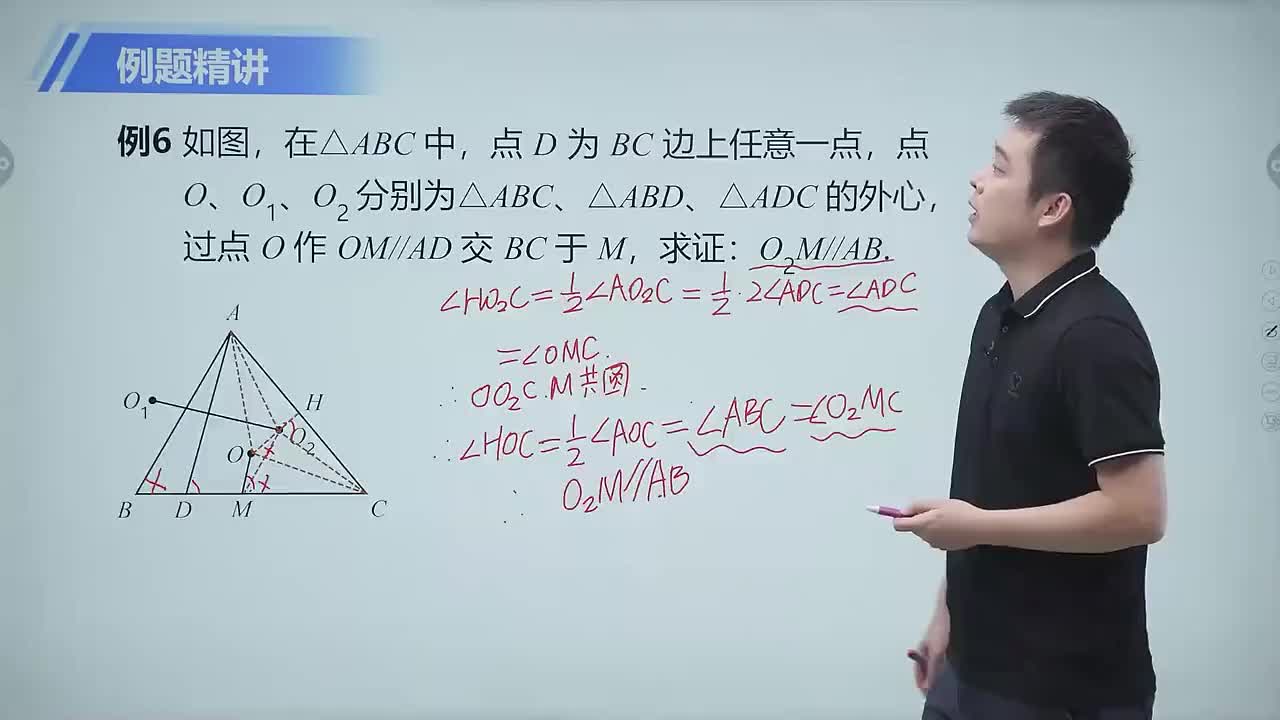 例题精讲
例6 如图，在△ABC 中，点 D 为 BC 边上任意一点，点
O、O₁、O₂分别为△ABC、△ABD、△ADC 的外心，
过点 O 作 OM//AD 交 BC 于 M，求证：O₂M//AB.
∠HO₂C=½∠AO₂C=½·2∠ADC=∠ADC
=∠OMC.
∴OO₂C.M共圆.
∴∠HOC=½∠AOC=∠ABC=∠O₂MC
∴ O₂M//AB
A
H
O₁
O₂
O
B D M C